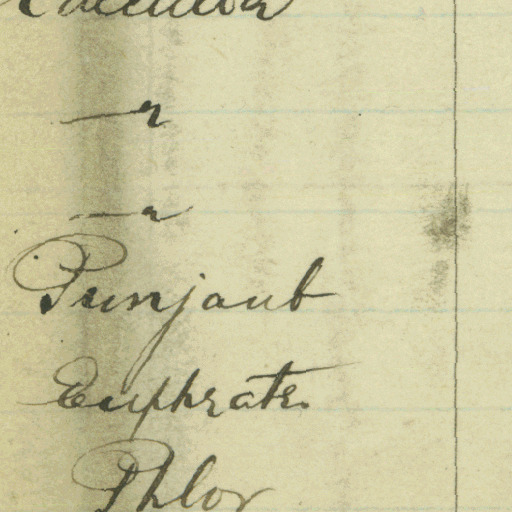 — "
— "
Punjaub
Euphrates
Phlox